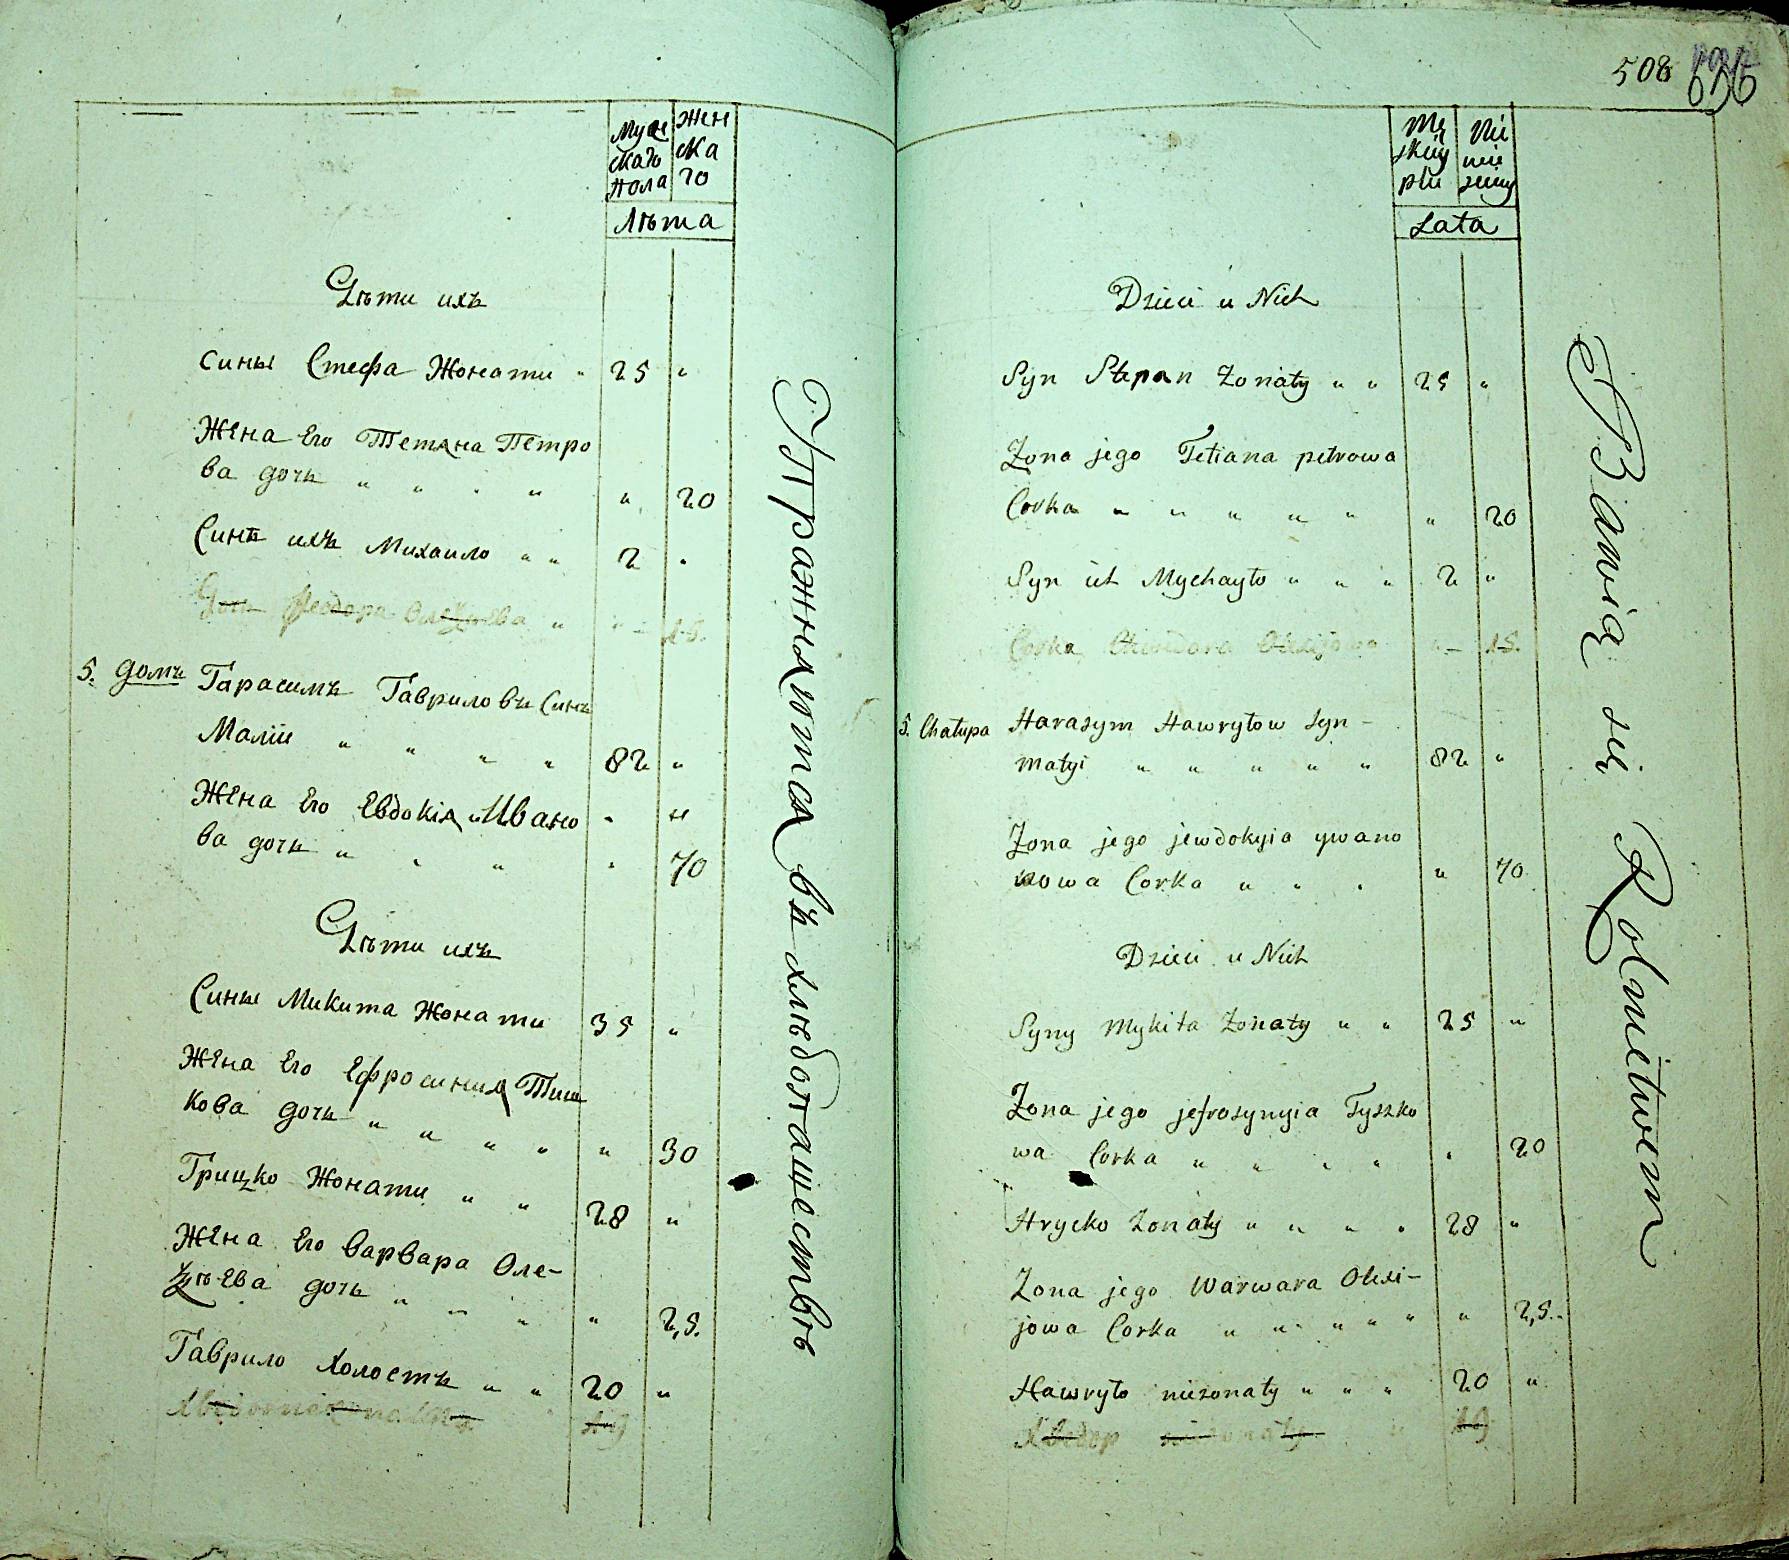 Муж
скаго
пола
Жен
ска
го
Лѣта
Дѣти ихъ
Сины Стефа Жонати " 25 "
Жена Его Тетяна Петро
ва дочь " " " " " 20
Синъ ихъ Михаило " " 2 "
Дочь Феодора " 18.
5. Домъ Гарасимъ Гавриловъ Синъ
Малій " " " " 82 "
Жена Его Евдокія Ивано " "
ва дочь " " " " 70
Дѣти ихъ
Сины Микита Жонати 35 "
Жена Его Ефросинія Тиш
кова дочь " " " " " 30
Грицко Жонати " " 28 "
Жена Его Варвара Оле-
дочь " " " " 25.
Гаврило Холостъ " " 20 "
19
Упражняются въ хлѣбопашествѣ
508
Mę
skiey
płci
Nie
wie
sciey
Lata
Dzieci u Nich
Syn Stepan Żonaty " " 25 "
Żona jego Tetiana petrowa
Corka " " " " " " 20
Syn ich Mychayło " " " 2 "
Corka 18.
5. Chałupa Harasym Hawryłow syn -
małyi " " " " " 82 "
Żona jego jewdokyia ywano
nowa Corka " " " " 70
Dzieci u Nich
Syny Mykita Żonaty " " 25 "
Żona jego jefrosynyia Tyszko
wa Corka " " " " " 20
Hrycko Żonaty " " " " 28 "
Żona jego Warwara Olexi-
jowa Corka " " " " " " 25.
Hawryło nieżonaty " " " 20 "
Chwedor nieżonaty " 19
Bawią się Rolnictwem